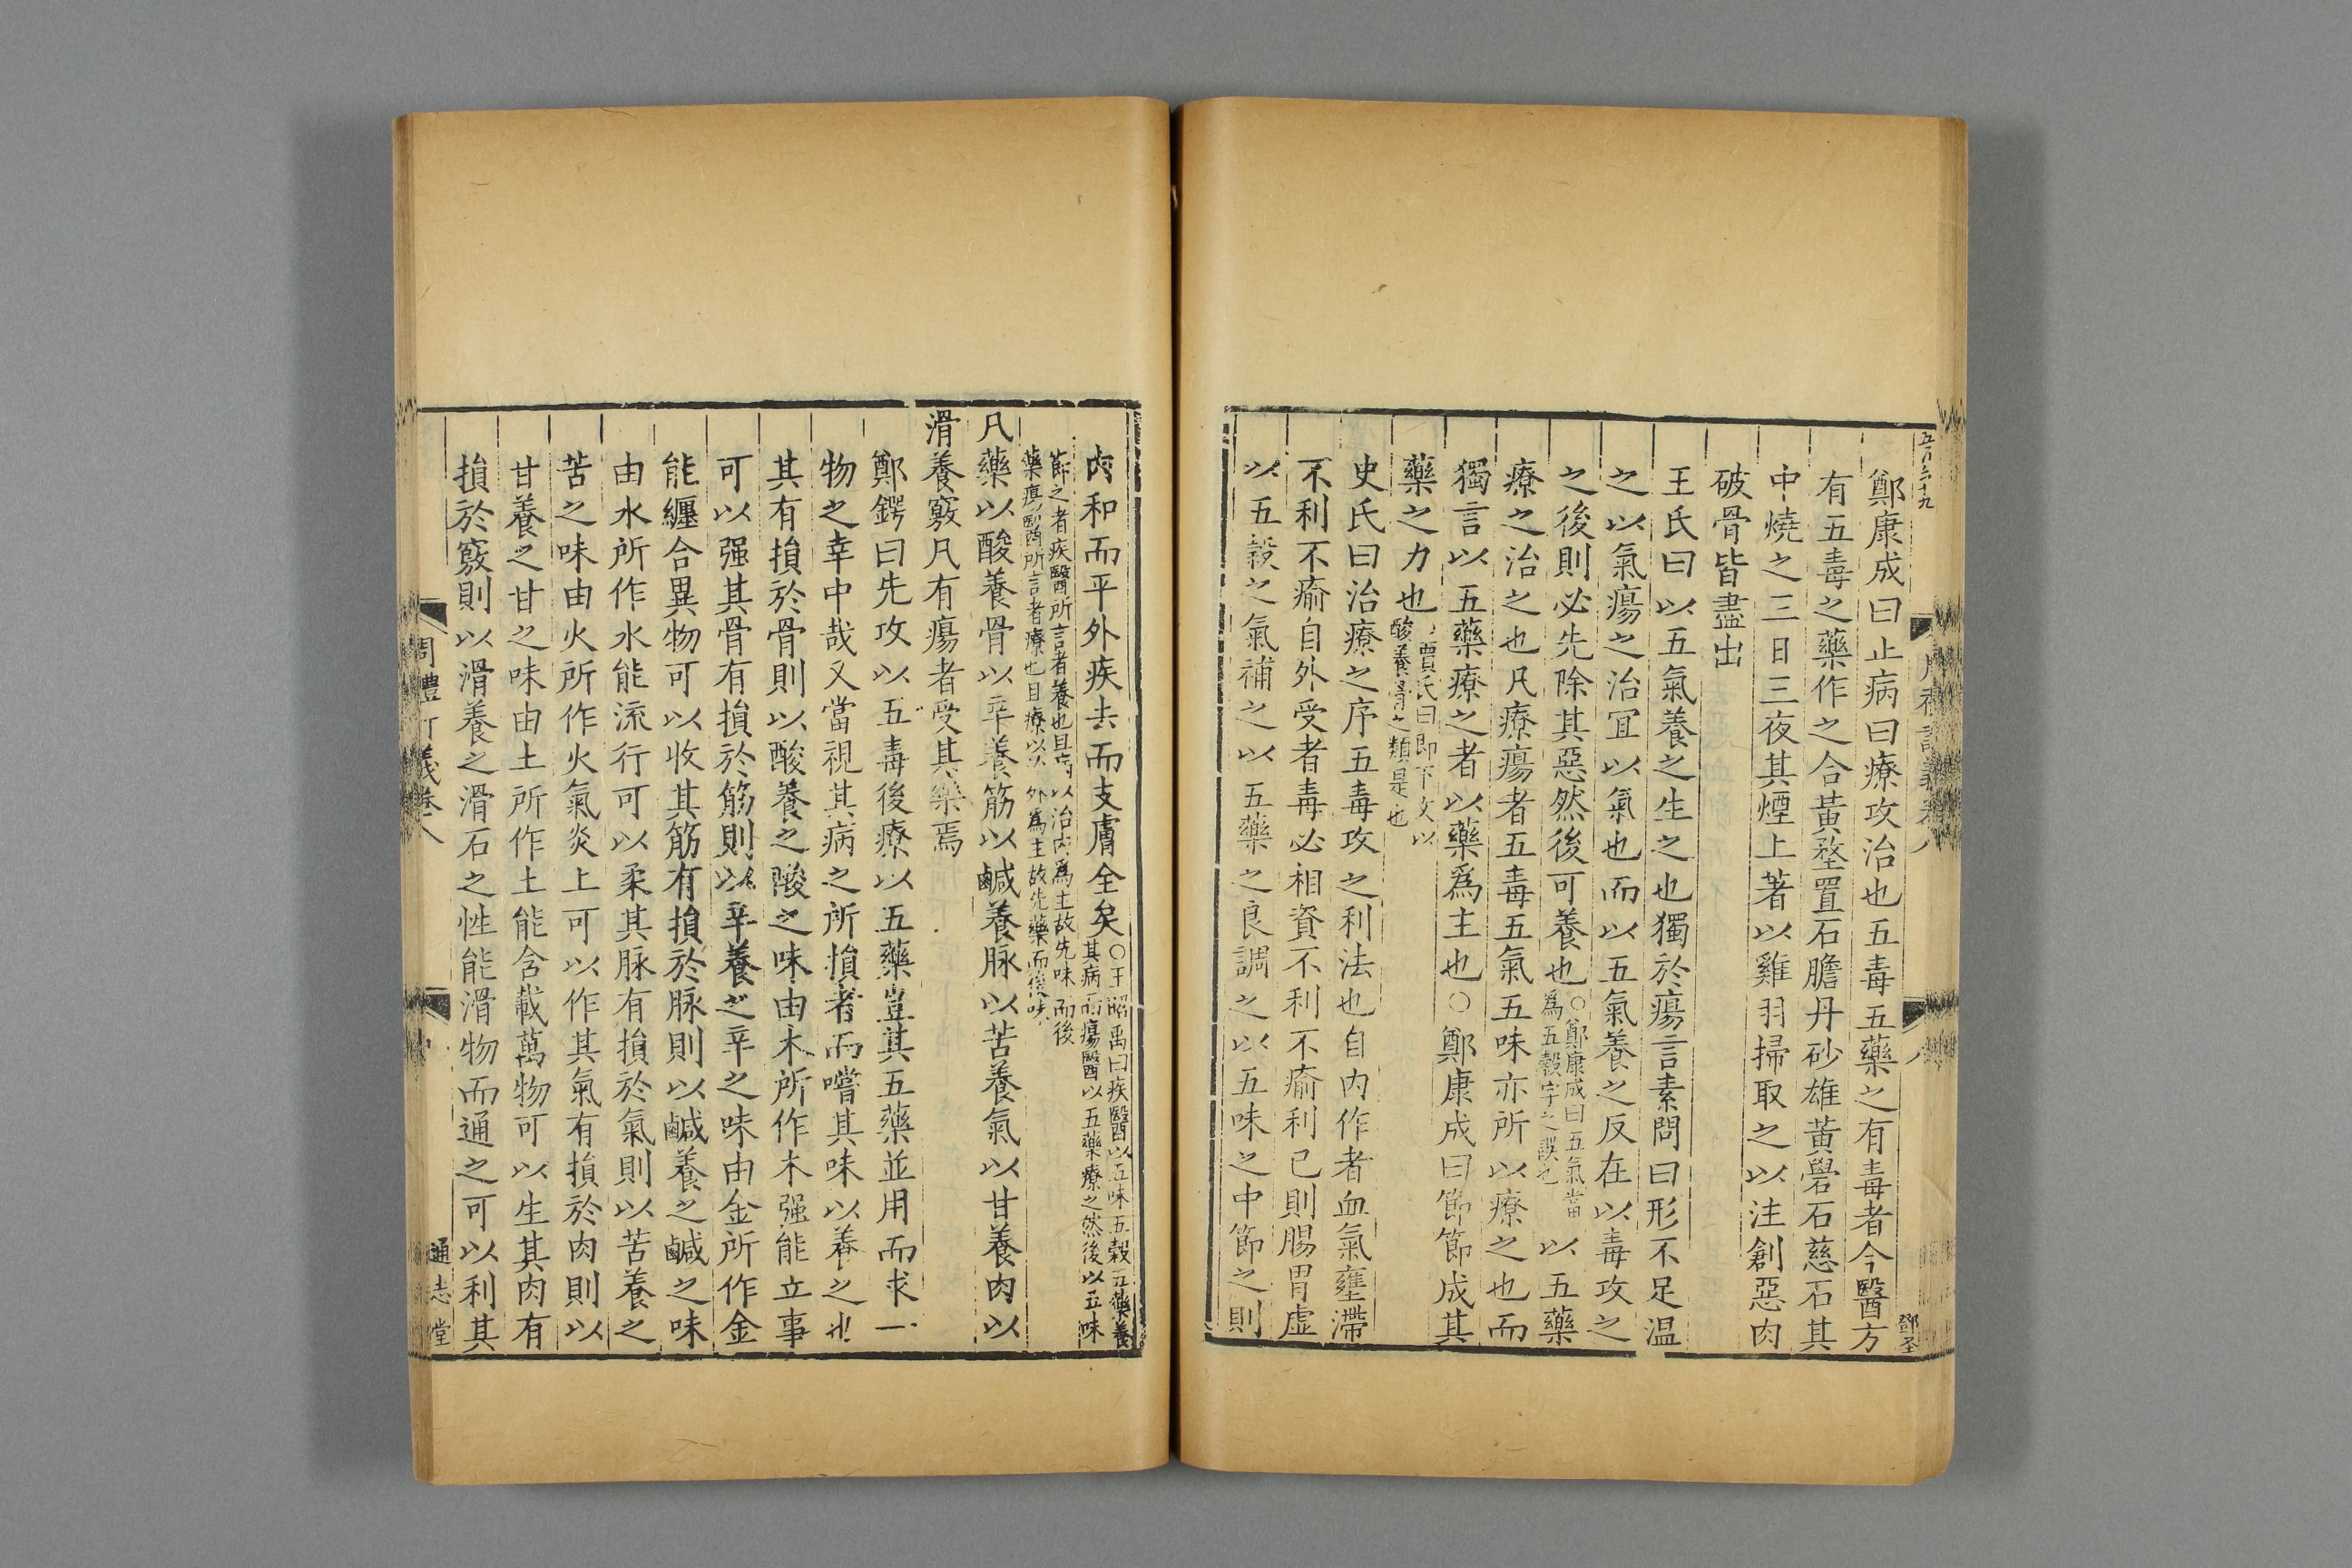 鄭康成曰止病曰療攻治也五毒五藥之有毒者今醫方
有五毒之藥作之合黃堥置石膽丹砂雄黃礜石慈石其
中燒之三日三夜其煙上著以雞羽掃取之以注創惡肉
破骨皆盡出
王氏曰以五氣養之生之也獨於瘍言素問曰形不足温
之以氣瘍之治宜以氣也而以五氣養之反在以毒攻之
之後則必先除其惡然後可養也○鄭康成曰五氣當為五穀字之誤也以五藥
療之治之也凡療瘍者五毒五氣五味亦所以療之也而
獨言以五藥療之者以藥為主也○鄭康成曰節節成其
藥之力也賈氏曰即下文以酸養骨之類是也
史氏曰治療之序五毒攻之利法也自内作者血氣壅滯
不利不瘉自外受者毒必相資不利不瘉利已則腸胃虛
以五穀之氣補之以五藥之良調之以五味之中節之則
内和而平外疾去而支膚全矣○王昭禹曰疾醫以五味五穀五藥養其病而瘍醫以五藥療之然後以五味
節之者疾醫所言者養也且病以治内爲主故先味而後藥瘍醫所言者療也且療以外爲主故先藥而後味
凡藥以酸養骨以辛養筋以鹹養脉以苦養氣以甘養肉以
滑養竅凡有瘍者受其藥焉
鄭鍔曰先攻以五毒後療以五藥豈其五藥並用而求一
物之幸中哉又當視其病之所損者而嚐其味以養之也
其有損於骨則以酸養之酸之味由木所作木强能立事
可以强其骨有損於筋則以辛養之辛之味由金所作金
能纏合異物可以收其筋有損於脉則以鹹養之鹹之味
由水所作水能流行可以柔其脉有損於氣則以苦養之
苦之味由火所作火氣炎上可以作其氣有損於肉則以
甘養之甘之味由土所作土能含載萬物可以生其肉有
損於竅則以滑養之滑石之性能滑物而通之可以利其
周禮訂義卷八
通志堂